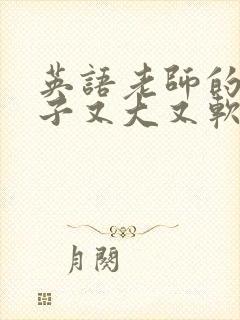 英語老師的
子又大又軟
月関